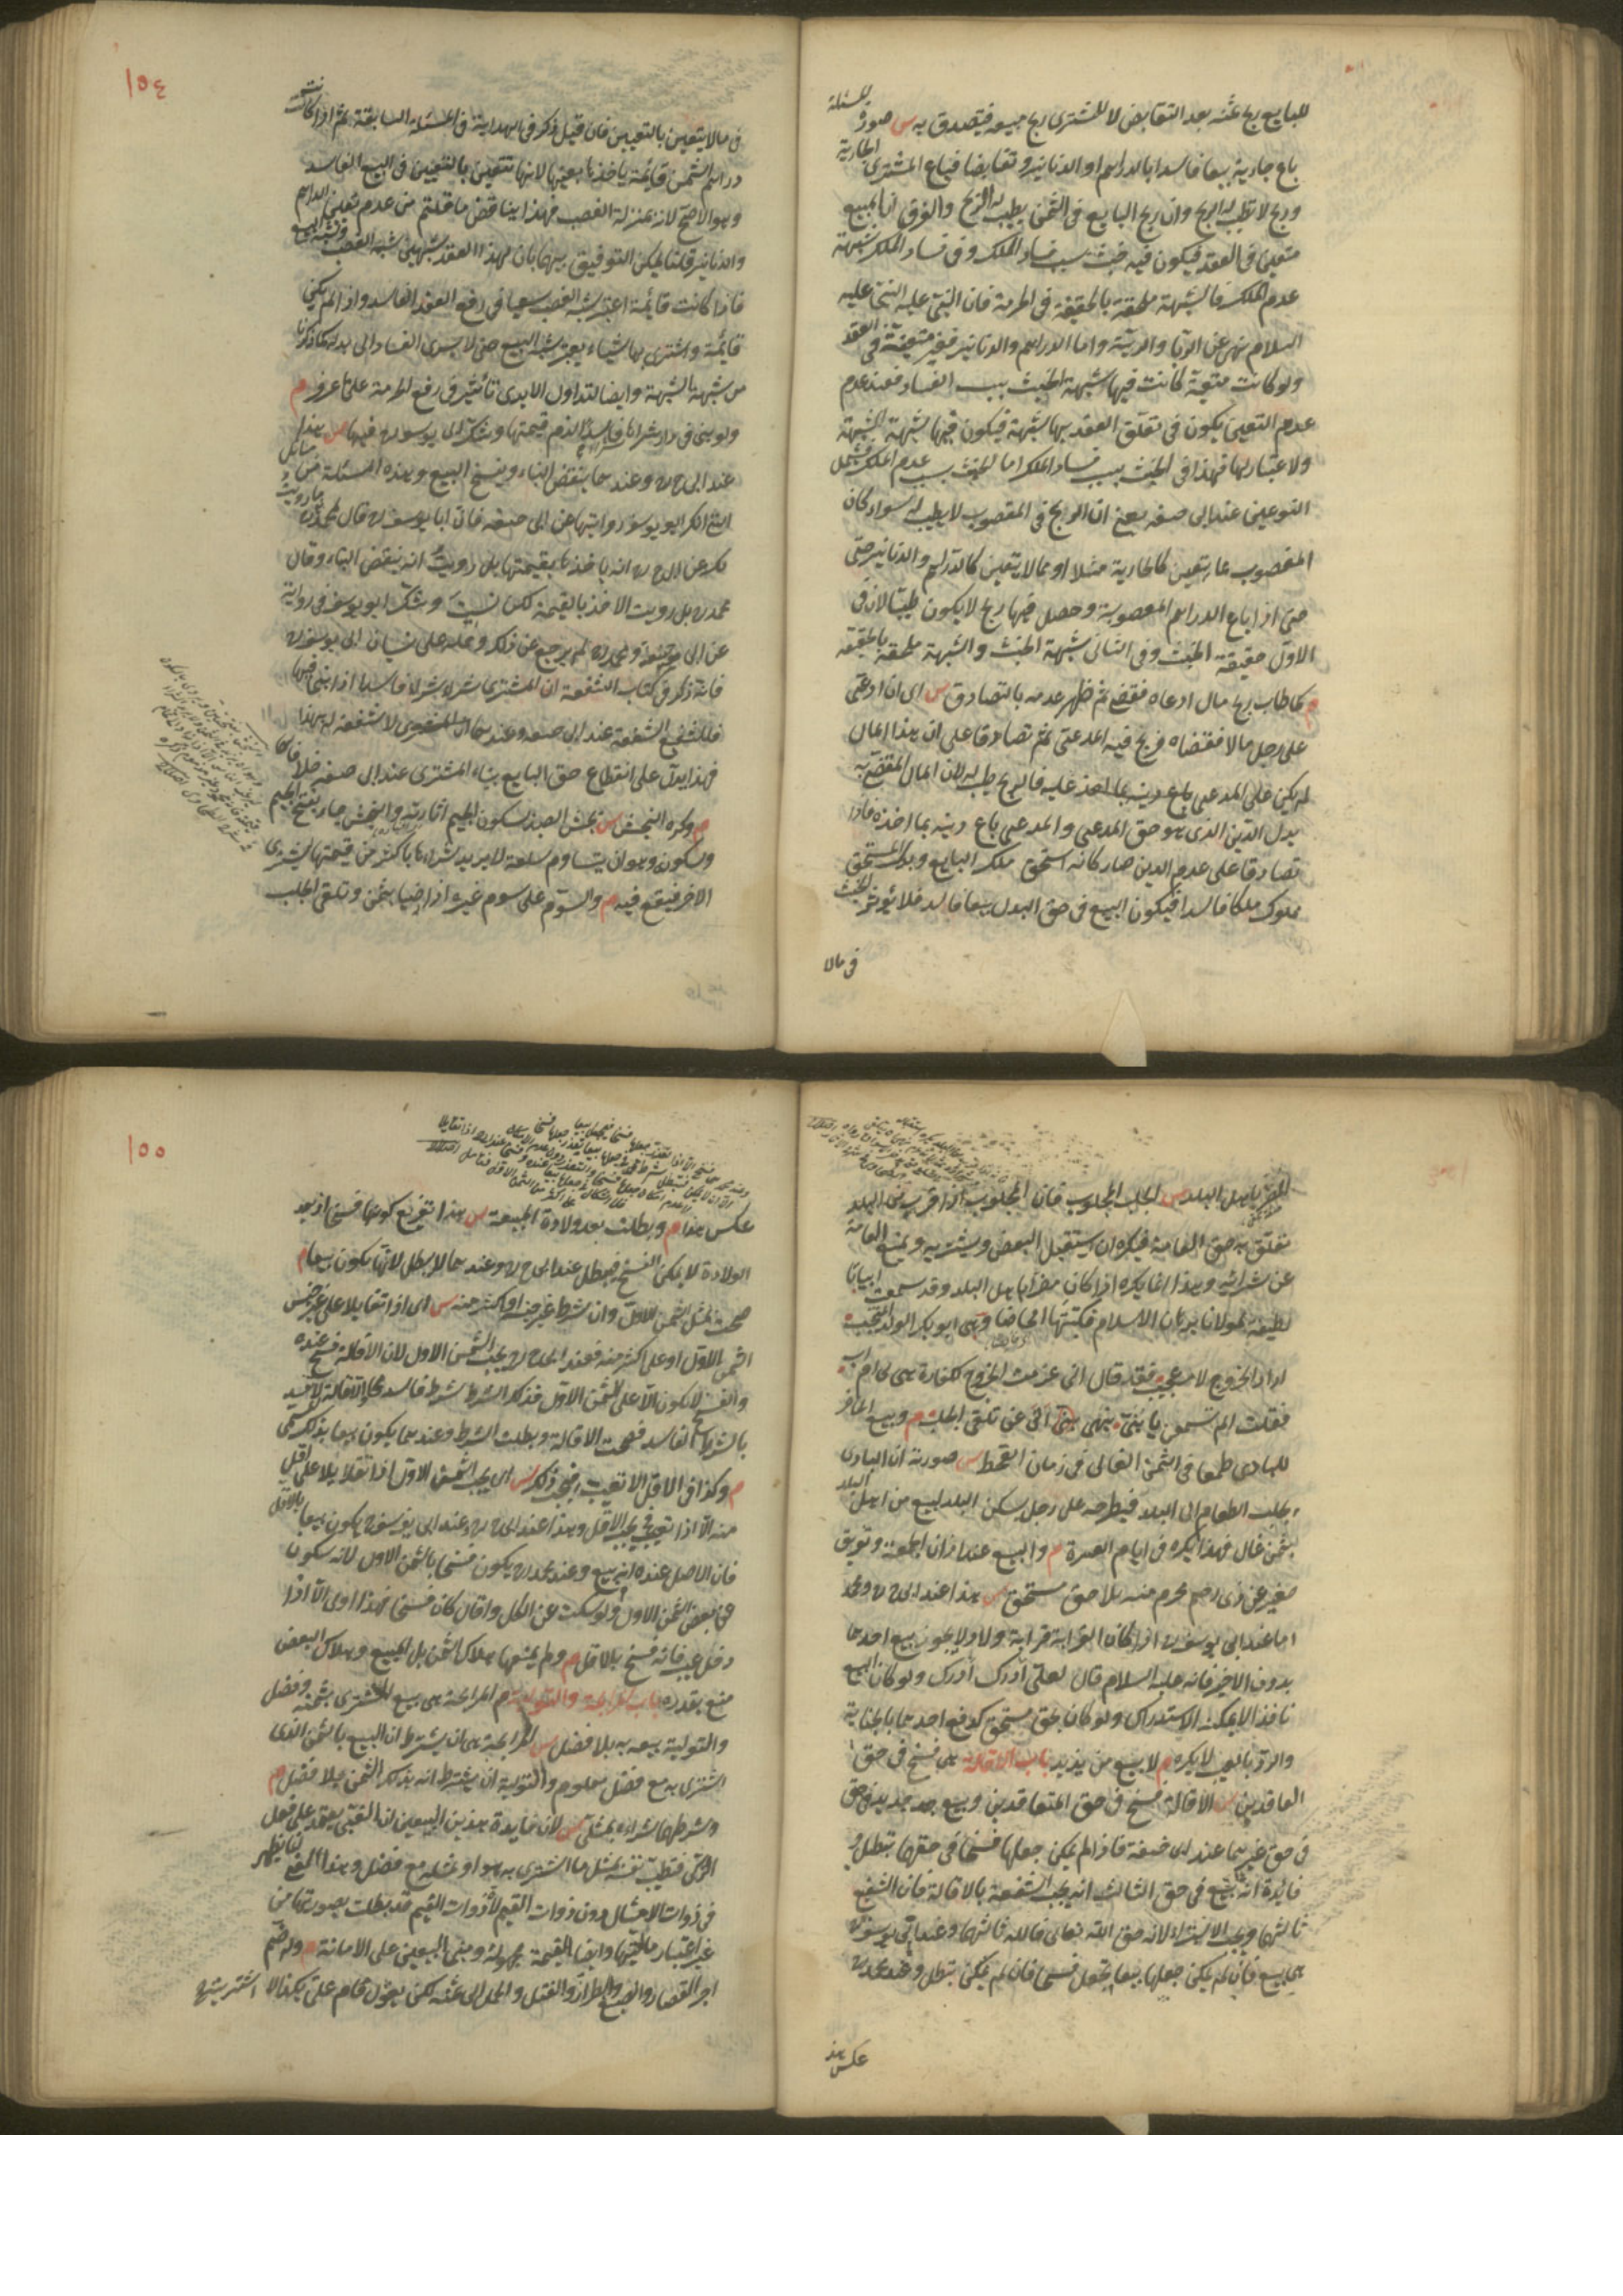 للبايع ربح ثمنه بعد التقابض لا للمشترى ربح مبيعه فيتصدق به س صورة المسئلة
باع جارية بيعا فاسدا بالدراهم او الدنانير و تقابضا فباع المشترى الجارية
وربح لا يطيب له الربح وان ربح البايع فى الثمن يطيب له الربح والفرق ان المبيع
متعين فى العقد فيكون فيه خبث بسبب فساد الملك وفى فساد الملك شبهة
عدم الملك فالشبهة ملحقة بالحقيقة فى الحرمة فان النبى عليه
السلام نهى عن الربا والريبة واما الدراهم والدنانير فغير متعينة فى العقد
ولو كانت متعينة كانت فيها شبهة الخبث بسبب الفساد فعند عدم
عدم التعين يكون فى تعلق العقد بها شبهة فيكون فيها شبهة الشبهة
ولا اعتبار لها فهذا فى الخبث بسبب فساد الملك اما الخبث بسبب عدم الملك فيشمل
النوعين عند ابى حنيفه يعنى ان الربح فى المغصوب لا يطيب له سواء كان
المغصوب مما يتعين كالجارية مثلا او مما لا يتعين كالدراهم والدنانير حتى
حتى اذا باع الدراهم المغصوبة وحصل فيها ربح لا يكون طيبا لان فى
الاول حقيقة الخبث وفى الثانى شبهة الخبث والشبهة ملحقة بالحقيقة
م كما طاب ربح مال ادعاه فقضى ثم ظهر عدمه بالتصادق س اى ان ادعى
على رجل مالا فقضاه فربح فيه المدعى ثم تصادقا على ان هذا المال
لم يكن على المدعى عليه فالربح يطيب له لان المال المقضى به
بدل الدين الذى هو حق المدعى والمدعى باع دينه بما اخذه فاذا
تصادقا على عدم الدين صار كانه استحق ملك البايع وبدل المستحق
مملوك ملكا فاسدا فيكون البيع فى حق البدل بيعا فاسدا فلا يؤثر الخبث
فى مالا
١٥٤
فى مالا يتعين بالتعيين فان قيل ذكر فى الهداية فى المسئلة السابقة ثم اذا كانت
دراهم الثمن قايمة ياخذها بعينها لانها تتعين بالتعيين فى البيع الفاسد
وهو الاصح لانه بمنزلة الغصب فهذا يناقض ما قلتم من عدم تعين الدراهم
والدنانير قلنا يمكن التوفيق بينهما بان لهذا العقد شبهين شبه الغصب وشبه البيع
فاذا كانت قايمة اعتبر شبه الغصب سعيا فى رفع العقد الفاسد واذا لم يكن
قايمة واشترى بها شيئا يعتبر شبه البيع حتى لا يسرى الفساد الى بدله كما ذكرنا
من شبهة الشبهة وايضا لتداول الايدى تأثير فى رفع الحرمة على ما عرف م
ولو بنى فى دار شراها فاسدا لزم قيمتها وشك ابو يوسف ره فيها س هذا
عند ابى ح ره وعندهما ينقض البناء ويفسخ البيع وهذه المسئلة من مسائل
التى انكر ابو يوسف روايتها عن ابى حنيفه فان ابا يوسف ره قال لمحمد ره ما رويت
لك عن ابى ح ره انه ياخذها بقيمتها بل رويت انه ينقض البناء وقال
محمد ره بل رويت الاخذ بالقيمة لكن نسيت وشك ابو يوسف فى رواية
عن ابى حنيفة ومحمد ره لم يرجع عن ذلك وحمله على نسيان ابى يوسف ره
فانه ذكر فى كتاب الشفعة ان المشترى شراء فاسدا اذا بنى فيها
فللشفيع الشفعة عند ابى حنيفه وعندهما لا شفعة له فهذا
فهذا يدل على انقطاع حق البايع ببناء المشترى عند ابى حنيفه خلافا لهما
م وكره النجش س نجش الصيد بسكون الجيم اثارته والنجش جاء بفتح الجيم
وسكونه وهو ان يساوم سلعة لا يريد شراءها باكثر من قيمتها ليشترى
الاخر فيقع فيه م والسوم على سوم غيره اذا رضيا بثمن وتلقى الجلب
المضر باهل البلد س الجلب المجلوب فان المجلوب اذا قرب من البلد
تعلق به حق العامة فيكره ان يستقبل البعض ويشتريه ويمنع العامة
عن شرائه وهذا انما يكره اذا كان مضرا باهل البلد وقد سمعت ابياتا
لطيفة لمولانا برهان الاسلام فكتبتها احماضا وهى ابو بكر الولد المنتخب
اراد الخروج لامر عجب فقد قال انى عزمت الخروج لكفارة هى لى ام اب
فقلت الم تسمعن يا بنى بنهى اتى عن تلقى الجلب م وبيع الحاضر
للبادى طمعا فى الثمن الغالى فى زمان القحط س صورته ان البادى
يجلب الطعام الى البلد فيطرحه على رجل يسكن البلد ليبيع من اهل البلد
بثمن غال فهذا يكره فى ايام العسرة م والبيع عند اذان الجمعة وتفريق
صغير عن ذى رحم محرم منه بلا حق مستحق س هذا عند ابى ح ره ومحمد
اما عند ابى يوسف ره اذا كان القرابة قرابة ولاد لا يجوز بيع احدهما
بدون الاخر فانه عليه السلام قال لعلى ادرك ادرك ولو كان البيع
نافذا لا يمكنه الاستدراك ولو كان بحق مستحق كدفع احدهما بالجناية
والرد بالعيب لا يكره م لا بيع من يزيد باب الاقالة هى فسخ فى حق
العاقدين س الاقالة فسخ فى حق المتعاقدين وبيع جديد فى حق
فى حق غيرهما عند ابى حنيفة فاذا لم يمكن جعلها فسخا فى حقهما تبطل و
فائدة انه بيع فى حق الثالث انه يجب الشفعة بالاقالة فان الشفيع
ثالثهما ويجب الاستبراء لانه حق الله تعالى فالله ثالثهما وعند ابى يوسف ره
هى بيع فان لم يمكن جعلها بيعا تجعل فسخا فان لم يمكن تبطل وعند محمد ره
عكس هذا
١٥٥
عكس هذا م وبطلت بعد ولادة المبيعة س هذا تفريع كونها فسخا اذ بعد
الولادة لا يمكن الفسخ فيبطل عند ابى ح ره وعندهما لا يبطل لانها يكون بيعا م
صحت بمثل الثمن الاول وان شرط غير جنسه او اكثر منه س اى اذا تقايلا على غير جنس
الثمن الاول او على اكثر منه فعند ابى ح ره يجب الثمن الاول لان الاقالة فسخ عنده
والفسخ لا يكون الا على الثمن الاول فذكر الشرط شرط فاسد والاقالة لا تفسد
بالشرط الفاسد فصحت الاقالة وبطلت الشرط وعندهما يكون بيعا بذلك المسمى
م وكذا فى الاقل الا تعيب فيجب ذلك س اى يجب الثمن الاول اذا تقايلا على اقل
منه الا اذا تعيب فح يجب الاقل وهذا عند ابى ح ره وعند ابى يوسف ره يكون بيعا بالاقل
فان الاصل عنده انه بيع وعند محمد ره يكون فسخا بالثمن الاول لانه سكوت
عن بعض الثمن الاول ولو سكت عن الكل واقال كان فسخا فهذا اولى الا اذا
دخل عيب فانه فسخ بالاقل م ولم يمنعها هلاك الثمن بل المبيع وهلاك البعض
منع بقدره باب المرابحة والتولية م المرابحة هى بيع المشترى بثمنه وفضل
والتولية بيعه به بلا فضل س المرابحة هى ان يشترط ان البيع بالثمن الذى
اشترى به مع فضل معلوم والتولية ان يشترط انه بذلك الثمن بلا فضل م
وشرطهما شراؤه بمثلى س لان فايدة هذين البيعين ان الغبى يعتمد على فعل
الذكى فتطيب نفسه بمثل ما اشترى به هو او بمثله مع فضل وهذا المعنى انما يظهر
فى ذوات الامثال دون ذوات القيم لان ذوات القيم قد يطلب بصورتها من
غير اعتبار ماليتها وايضا القيمة مجهولة ومبنى البيعين على الامانة م وله ضم
اجر القصار والصبغ والطراز والفتل والحمل الى ثمنه لكن يقول قام على بكذا لا اشتريته